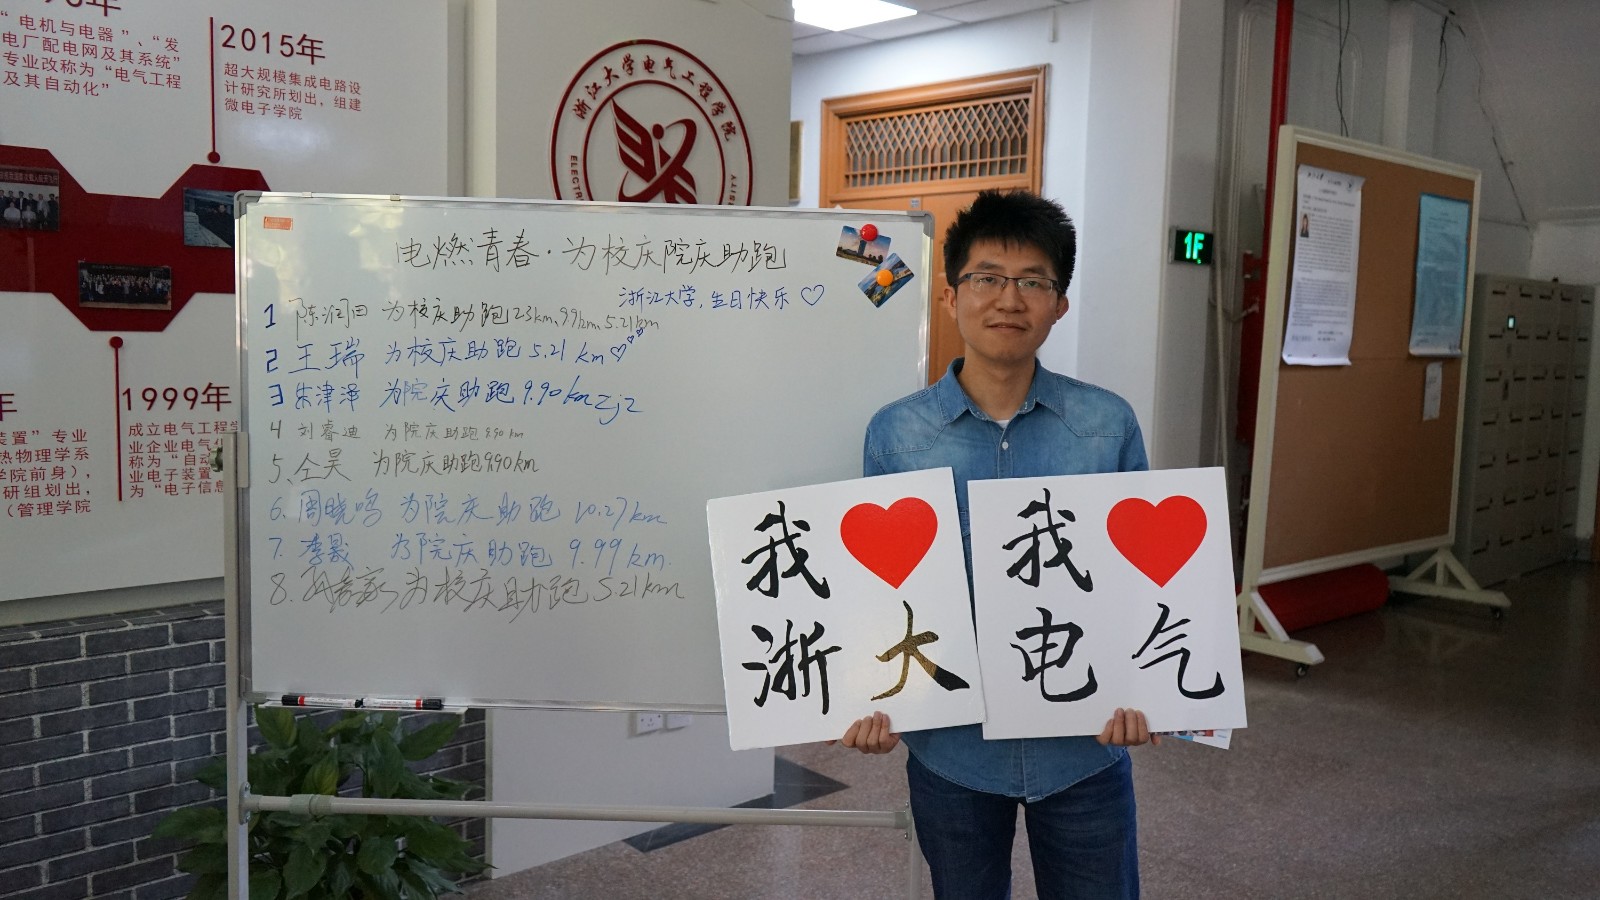 “电机与电器”、“发
电厂配电网及其系统”
专业改称为“电气工程
及其自动化”
2015年
超大规模集成电路设
计研究所划出，组建
微电子学院
浙江大学电气工程学院
电燃青春·为校庆院庆助跑
浙江大学,生日快乐♡
1 陈润田 为校庆助跑23km、99km、5.21km
2 王瑞 为校庆助跑 5.21 km♡
3 朱津泽 为院庆助跑 9.90km zjz
4 刘睿迪 为院庆助跑 9.90 km
5、仝昊 为院庆助跑9.90km
6. 周晓鸣 为院庆助跑 10.27km
7. 李晟 为院庆助跑 9.99km.
8. 为校庆助跑 5.21km
我❤
浙大
我❤
电气
1F
年
装置”专业
热物理学系
学院前身），
研组划出，
（管理学院
1999年
成立电气工程学
业企业电气
称为“自动
业电子装置
为“电子信息